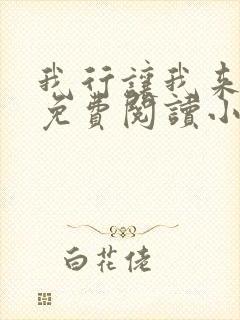 我行讓我來
免費閱讀小
白花佬